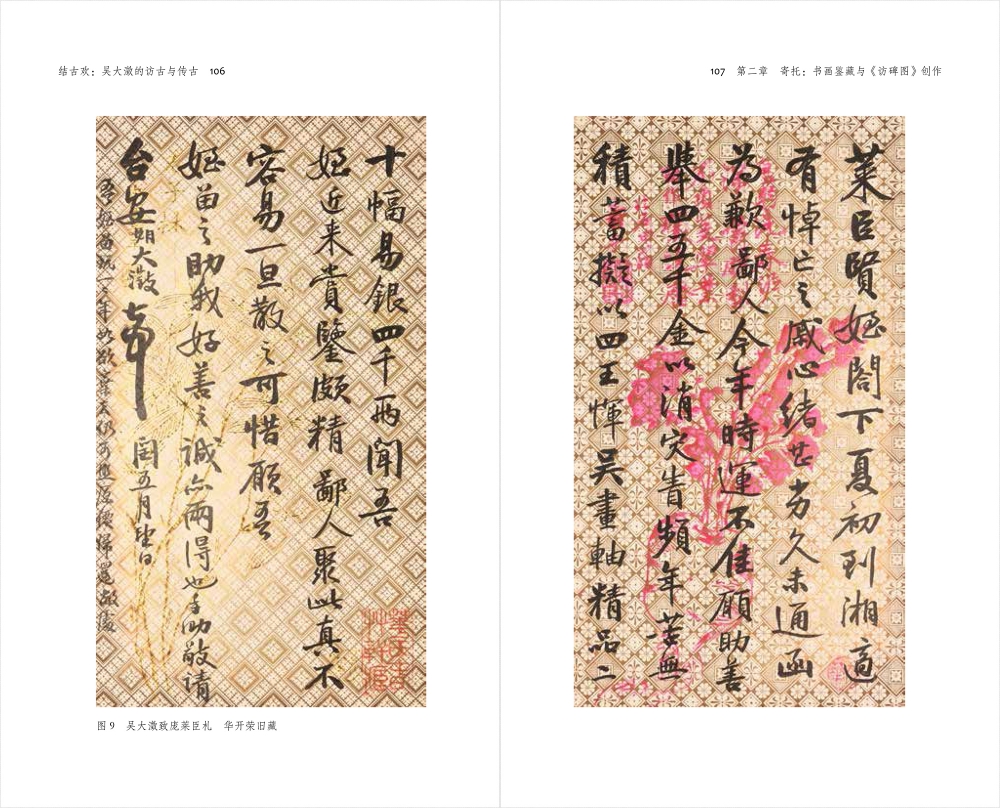 结古欢：吴大澂的访古与传古 106
107 第二章 寄托：书画鉴藏与《访碑图》创作
莱臣賢姪閣下夏初到湘適
有悼亡之戚心緒茫劣久未通函
為歉鄙人今年時運不佳願助善
舉四五千金以消灾眚頻年苦無
積蓄擬以四王惲吴畫軸精品二
十幅易銀四千兩聞吾
姪近来賞鑒頗精鄙人聚此真不
容易一旦散之可惜願吾
姪留之助我好善之誠亦兩得也手泐敬請
台安期大澂頓首 閏五月望日
吾姪留玩一二年如欲棄去仍可照原價歸還敝處
图9 吴大澂致庞莱臣札 华开荣旧藏